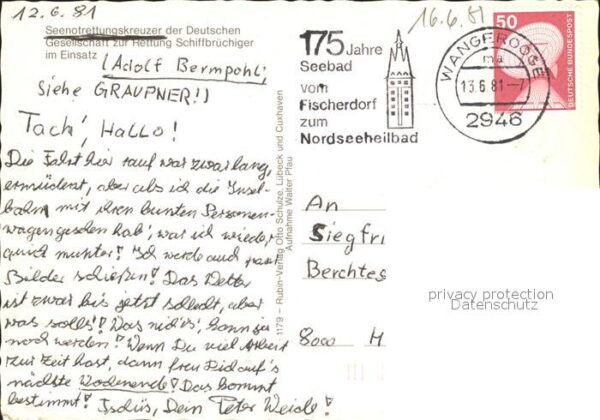 12.6.81
16.6.81
Seenotrettungskreuzer der Deutschen
Gesellschaft zur Rettung Schiffbrüchiger
im Einsatz
(Adolf Bermpohl;
siehe GRAUPNER!)
Tach', HALLO!
Die Fahrt hier rauf war zwar lang,
ermüdend, aber als ich die Insel-
bahn mit ihren bunten Personen-
wagen gesehen hab', war ich wieder
quick munter! Ich werde auch paar
Bilder schießen! Das Wetter
ist zwar bis jetzt schlecht, aber
was solls! Das nich's, kann ja
noch werden! Wenn Du viel Arbeit
zur Zeit hast, dann freu Dich auf's
nächste Wochenende! Das kommt
bestimmt! Tschüs, Dein Peter Weide!
1179 – Rubin-Verlag Otto Schulze, Lübeck und Cuxhaven
Aufnahme Walter Pfau
175 Jahre
Seebad
vom
Fischerdorf
zum
Nordseeheilbad
WANGEROOGE
ma
13.6.81-7
2946
50
DEUTSCHE BUNDESPOST
An
Siegfri
Berchtes
8000 M
privacy protection
Datenschutz